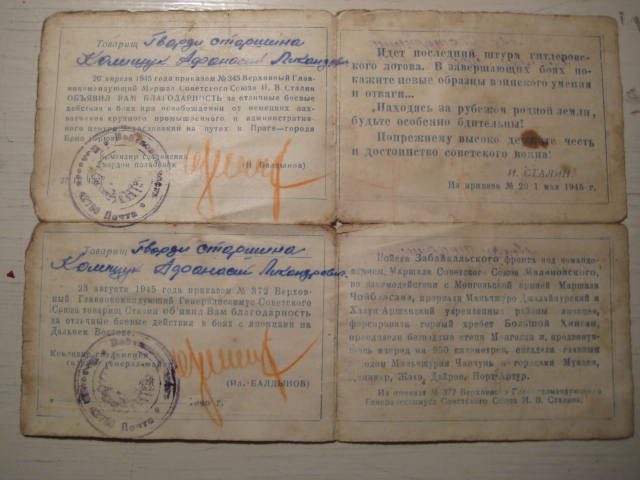 Товарищ Гварди старшина
Колищук Афанасий Никандрович
26 апреля 1945 года приказом №345 Верховный Глав-
нокомандующий Маршал Советского Союза И. В. Сталин
ОБЪЯВИЛ ВАМ БЛАГОДАРНОСТЬ за отличные боевые
действия в боях при освобождении от немецких зах-
ватчиков крупного промышленного и административ-
ного центра Чехословакии на путях к Праге—города
Брно
Командир соединения
Гвардии полковник
(И Балдынов)
Почта
Идет последний штурм гитлеровс-
кого логова. В завершающих боях по-
кажите новые образцы воинского умения
и отваги...
Находясь за рубежом родной земли,
будьте особенно бдительны!
Попрежнему высоко держите честь
и достоинство советского воина!
И. СТАЛИН.
Из приказа № 20 1 мая 1945 г.
Товарищ Гварди старшина
Колищук Афанасий Никандрович.
23 августа 1945 года приказом № 372 Верхов-
ный Главнокомандующий Генералиссимус Советского
Союза товарищ Сталин об'явил Вам благодарность
за отличные боевые действия в боях с японцами на
Дальнем Востоке.
Командир соединения
(Ил. БАЛДЫНОВ)
Почта
Войска Забайкальского фронта под командо-
ванием Маршала Советского Союза Малиновского,
во взаимодействии с Монгольской армией Маршала
Чойбалсана, прорвали Маньчжуро Джалайнурский и
Халун-Аршанский укрепленные районы японцев,
форсировали горный хребет Большой Хинган,
преодолели безводные степи Монголии и, продвинув-
шись вперед на 950 километров, овладели главным
городом Маньчжурии Чанчунь и городами Мукден,
Цицикар, Жэхэ, Дайрен, Порт-Артур.
Из приказа № 372 Верховного Главнокомандующего
Генералиссимуса Советского Союза И. В. Сталина.